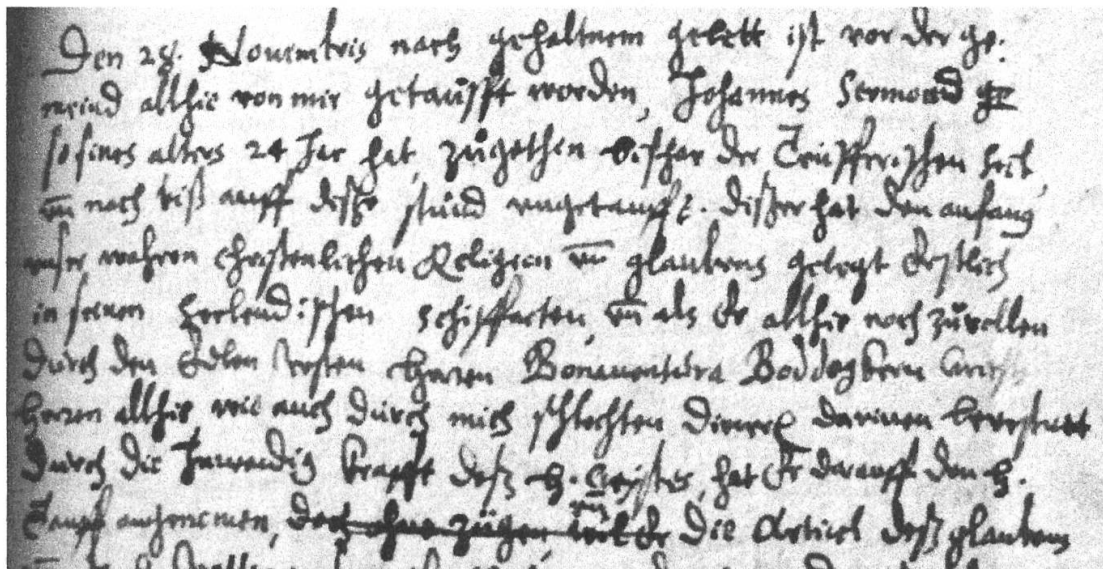 Den 28. Novembris nach gehaltnem gebett ist vor der ge-
meind allhie von mir getaůfft worden, Johannes Sermond
so seines alters 24 Jar hat, zůgethen bisshar der Teüfferischen sect,
uñ noch biß auff dißhe stůnd ungetaufft. dißer hat den anfang
unser wahren christenlichen Religion uñ glaubens gelegt Erstlich
in seinen Seelendischen schiffarten, uñ als Er allhie noch zůvollen
durch den Edlen vesten Herren Bonaventůra Boddegkern
herren allhie wie auch důrch mich schlechten diener darinnen bevestnet
durch die Inwendig krafft deß h. Geystes, hat Er darauff den h.
Tauff angenomen, doch ohne zůgen, Er die Articel deß glaubens